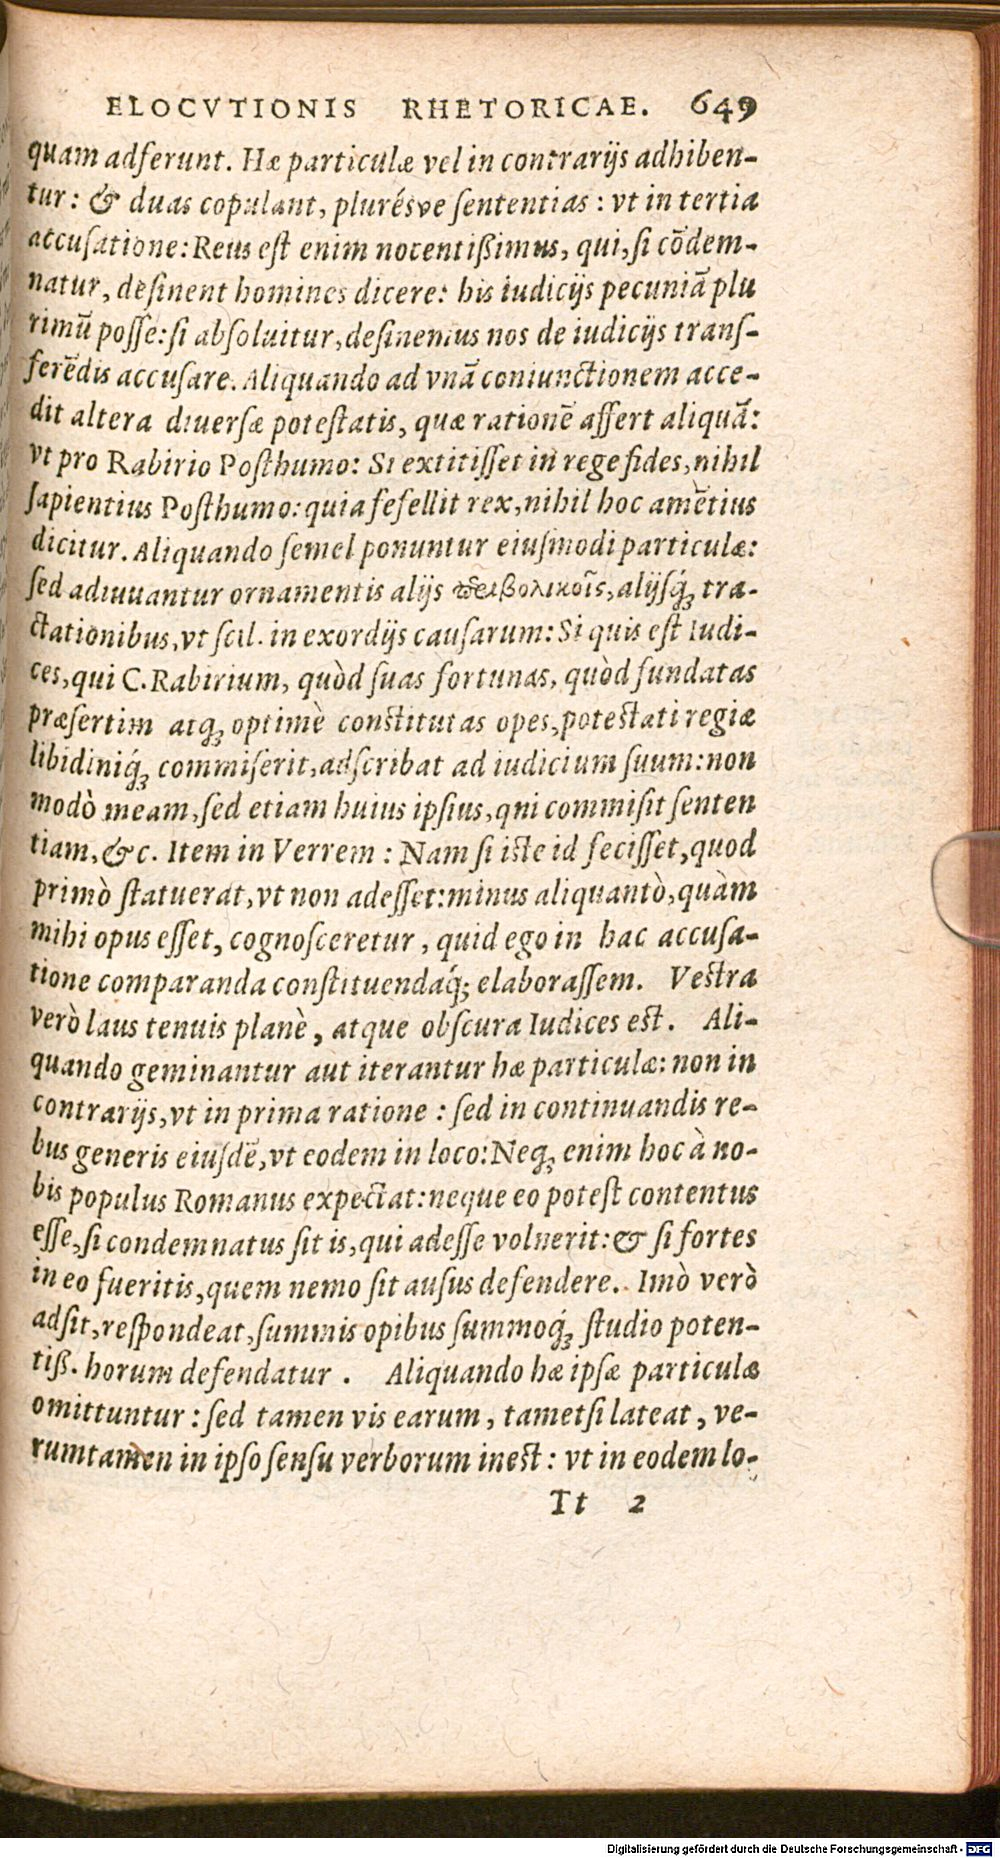 ELOCVTIONIS RHETORICAE. 649
quam adferunt. Hæ particulæ vel in contrarijs adhiben-
tur: & duas copulant, plurésve ſententias: vt in tertia
accuſatione: Reus eſt enim nocentißimus, qui, ſi cōdem-
natur, deſinent homines dicere: his iudicijs pecuniā plu
rimū poſſe: ſi abſoluitur, deſinemus nos de iudicijs tranſ-
ferēdis accuſare. Aliquando ad vnā coniunctionem acce-
dit altera diuerſæ poteſtatis, quæ rationē affert aliquā:
vt pro Rabirio Poſthumo: Si extitiſſet in rege fides, nihil
ſapientius Poſthumo: quia fefellit rex, nihil hoc amētius
dicitur. Aliquando ſemel ponuntur eiuſmodi particulæ:
ſed adiuuantur ornamentis alijs περιβολικοῖς, alijſq́ꝫ tra-
ctationibus, vt ſcil. in exordijs cauſarum: Si quis eſt Iudi-
ces, qui C. Rabirium, quòd ſuas fortunas, quòd fundatas
præſertim atqꝫ optimè conſtitutas opes, poteſtati regiæ
libidiniq́ꝫ commiſerit, adſcribat ad iudicium ſuum: non
modò meam, ſed etiam huius ipſius, qni commiſit ſenten
tiam, &c. Item in Verrem: Nam ſi iſte id feciſſet, quod
primò ſtatuerat, vt non adeſſet: minus aliquantò, quàm
mihi opus eſſet, cognoſceretur, quid ego in hac accuſa-
tione comparanda conſtituendaq́; elaboraſſem. Veſtra
verò laus tenuis planè, atque obſcura Iudices eſt. Ali-
quando geminantur aut iterantur hæ particulæ: non in
contrarijs, vt in prima ratione: ſed in continuandis re-
bus generis eiuſdē, vt eodem in loco: Neqꝫ enim hoc à no-
bis populus Romanus expectat: neque eo poteſt contentus
eſſe, ſi condemnatus ſit is, qui adeſſe volnerit: & ſi fortes
in eo fueritis, quem nemo ſit auſus defendere. Imò verò
adſit, reſpondeat, ſummis opibus ſummoq́ꝫ ſtudio poten-
tiß. horum defendatur. Aliquando hæ ipſæ particulæ
omittuntur: ſed tamen vis earum, tametſi lateat, ve-
rumtamen in ipſo ſenſu verborum ineſt: vt in eodem lo-
Tt 2
Digitalisierung gefördert durch die Deutsche Forschungsgemeinschaft - DFG